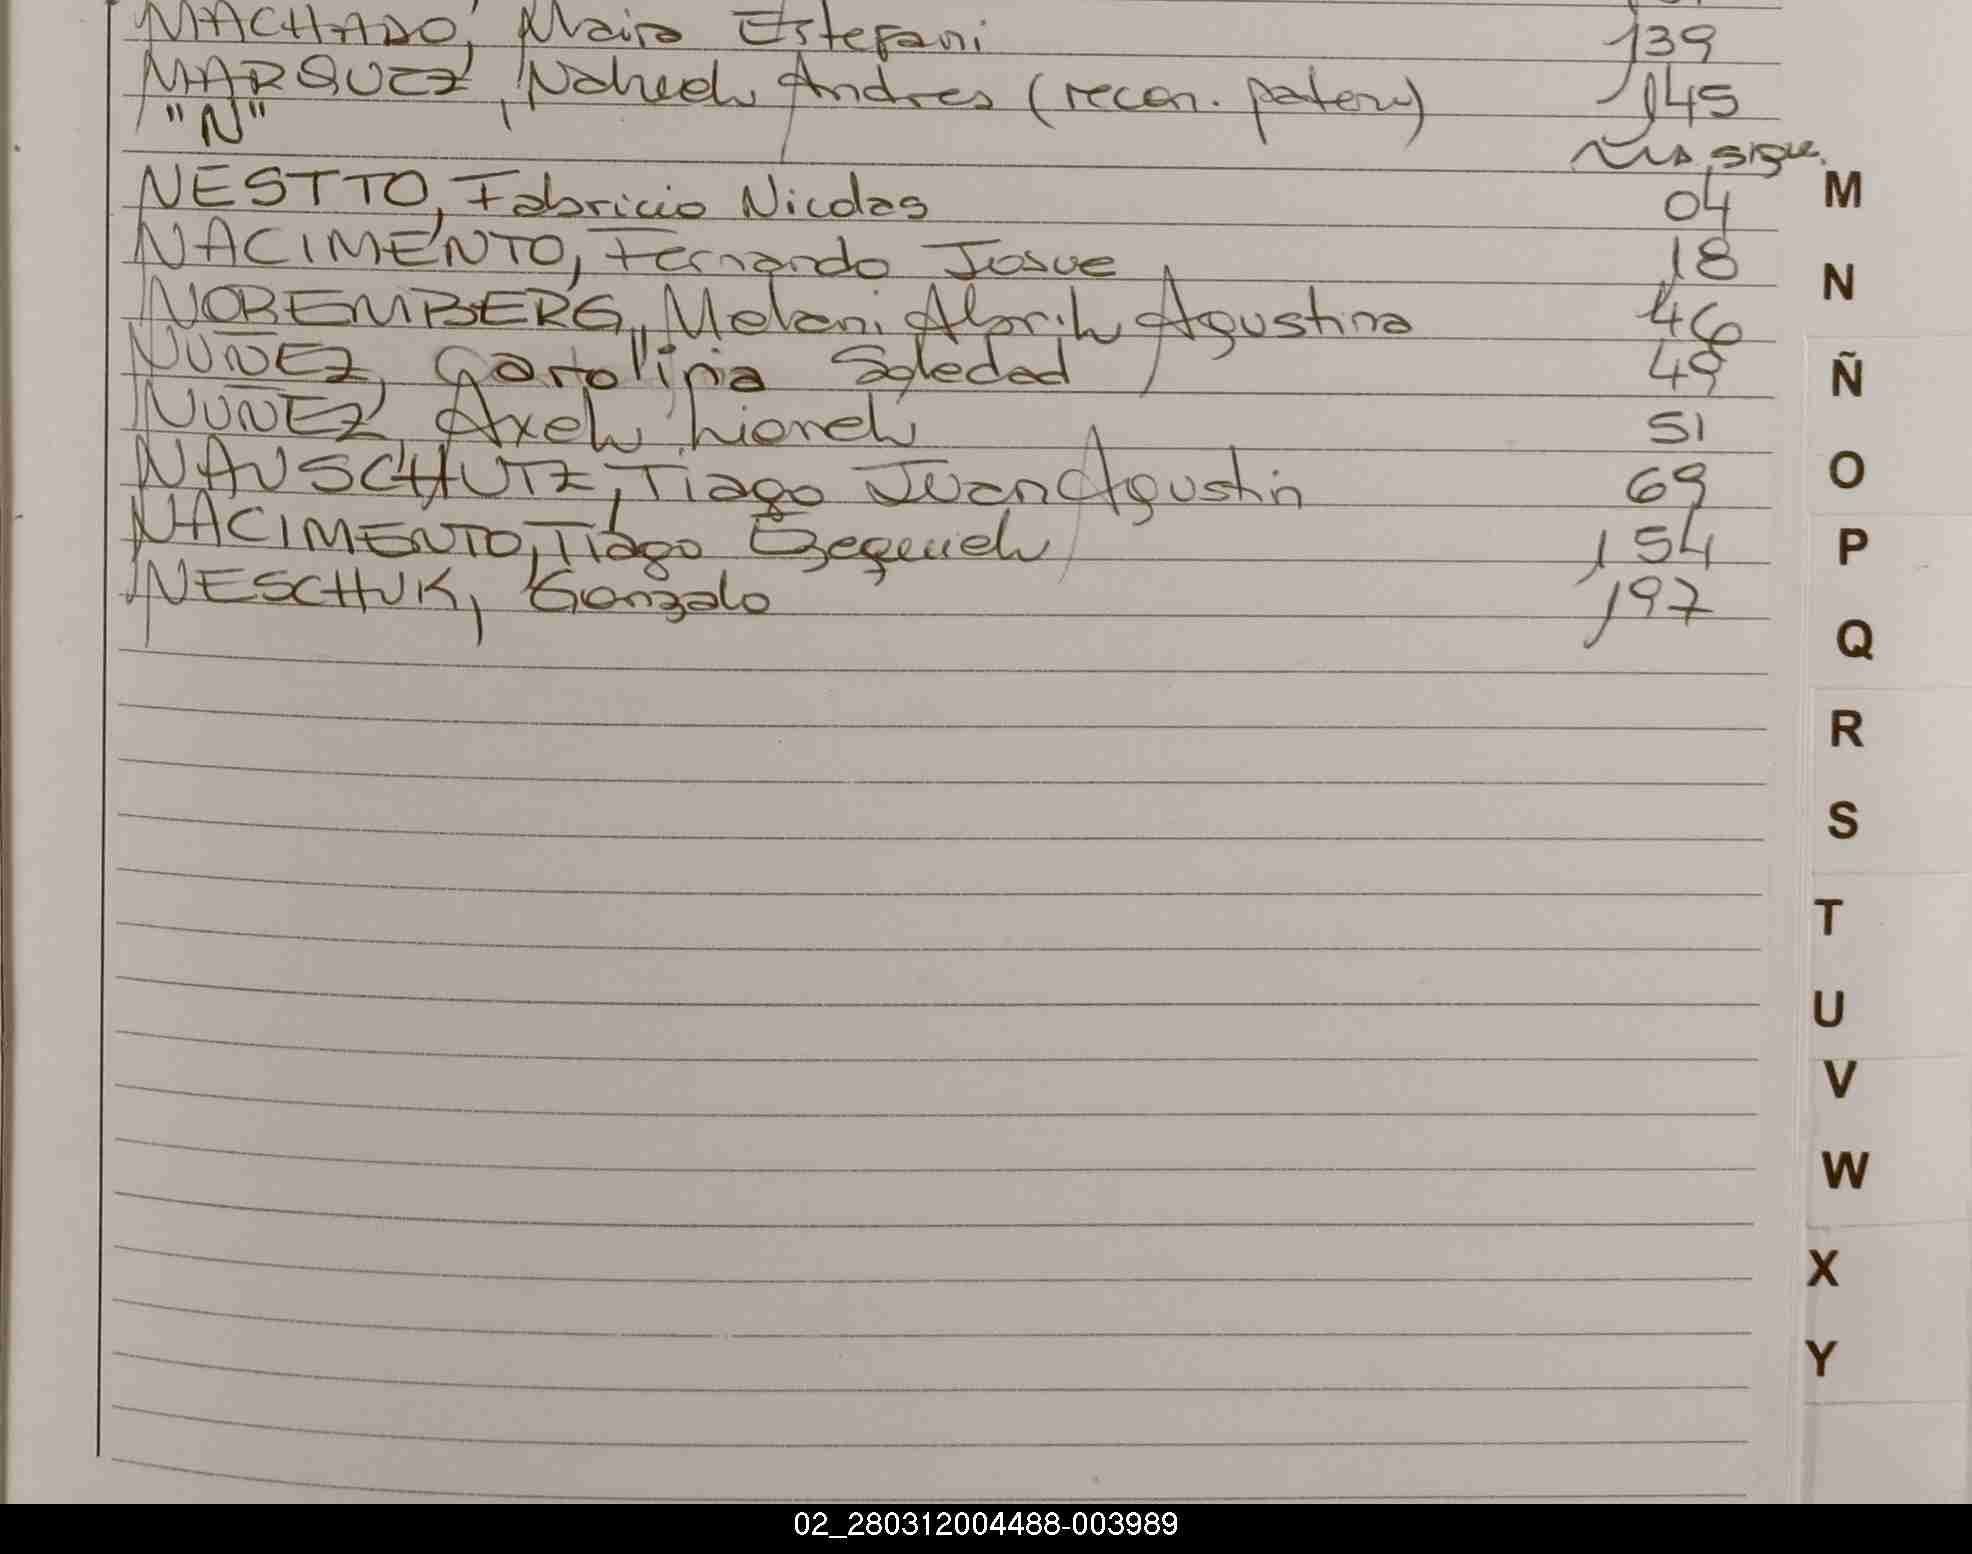 MACHADO, Maira Estefani 139
MARQUEZ, Nahuel Andres (recon. patern) 145
"N"
sigue.
NESTTO, Fabricio Nicolas 04
NACIMENTO, Fernando Josue 18
NOREMBERG, Melani Abril Agustina 46
NUÑEZ, Carolina Soledad 49
NUÑEZ, Axel Lionel 51
NAUSCHUTZ, Tiago Juan Agustin 69
NACIMENTO, Tiago Ezequiel 154
NESCHUK, Gonzalo 197
M
N
Ñ
O
P
Q
R
S
T
U
V
W
X
Y
02_280312004488-003989